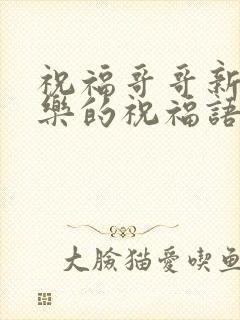 祝福哥哥新
樂的祝福語
大臉猫愛喫鱼